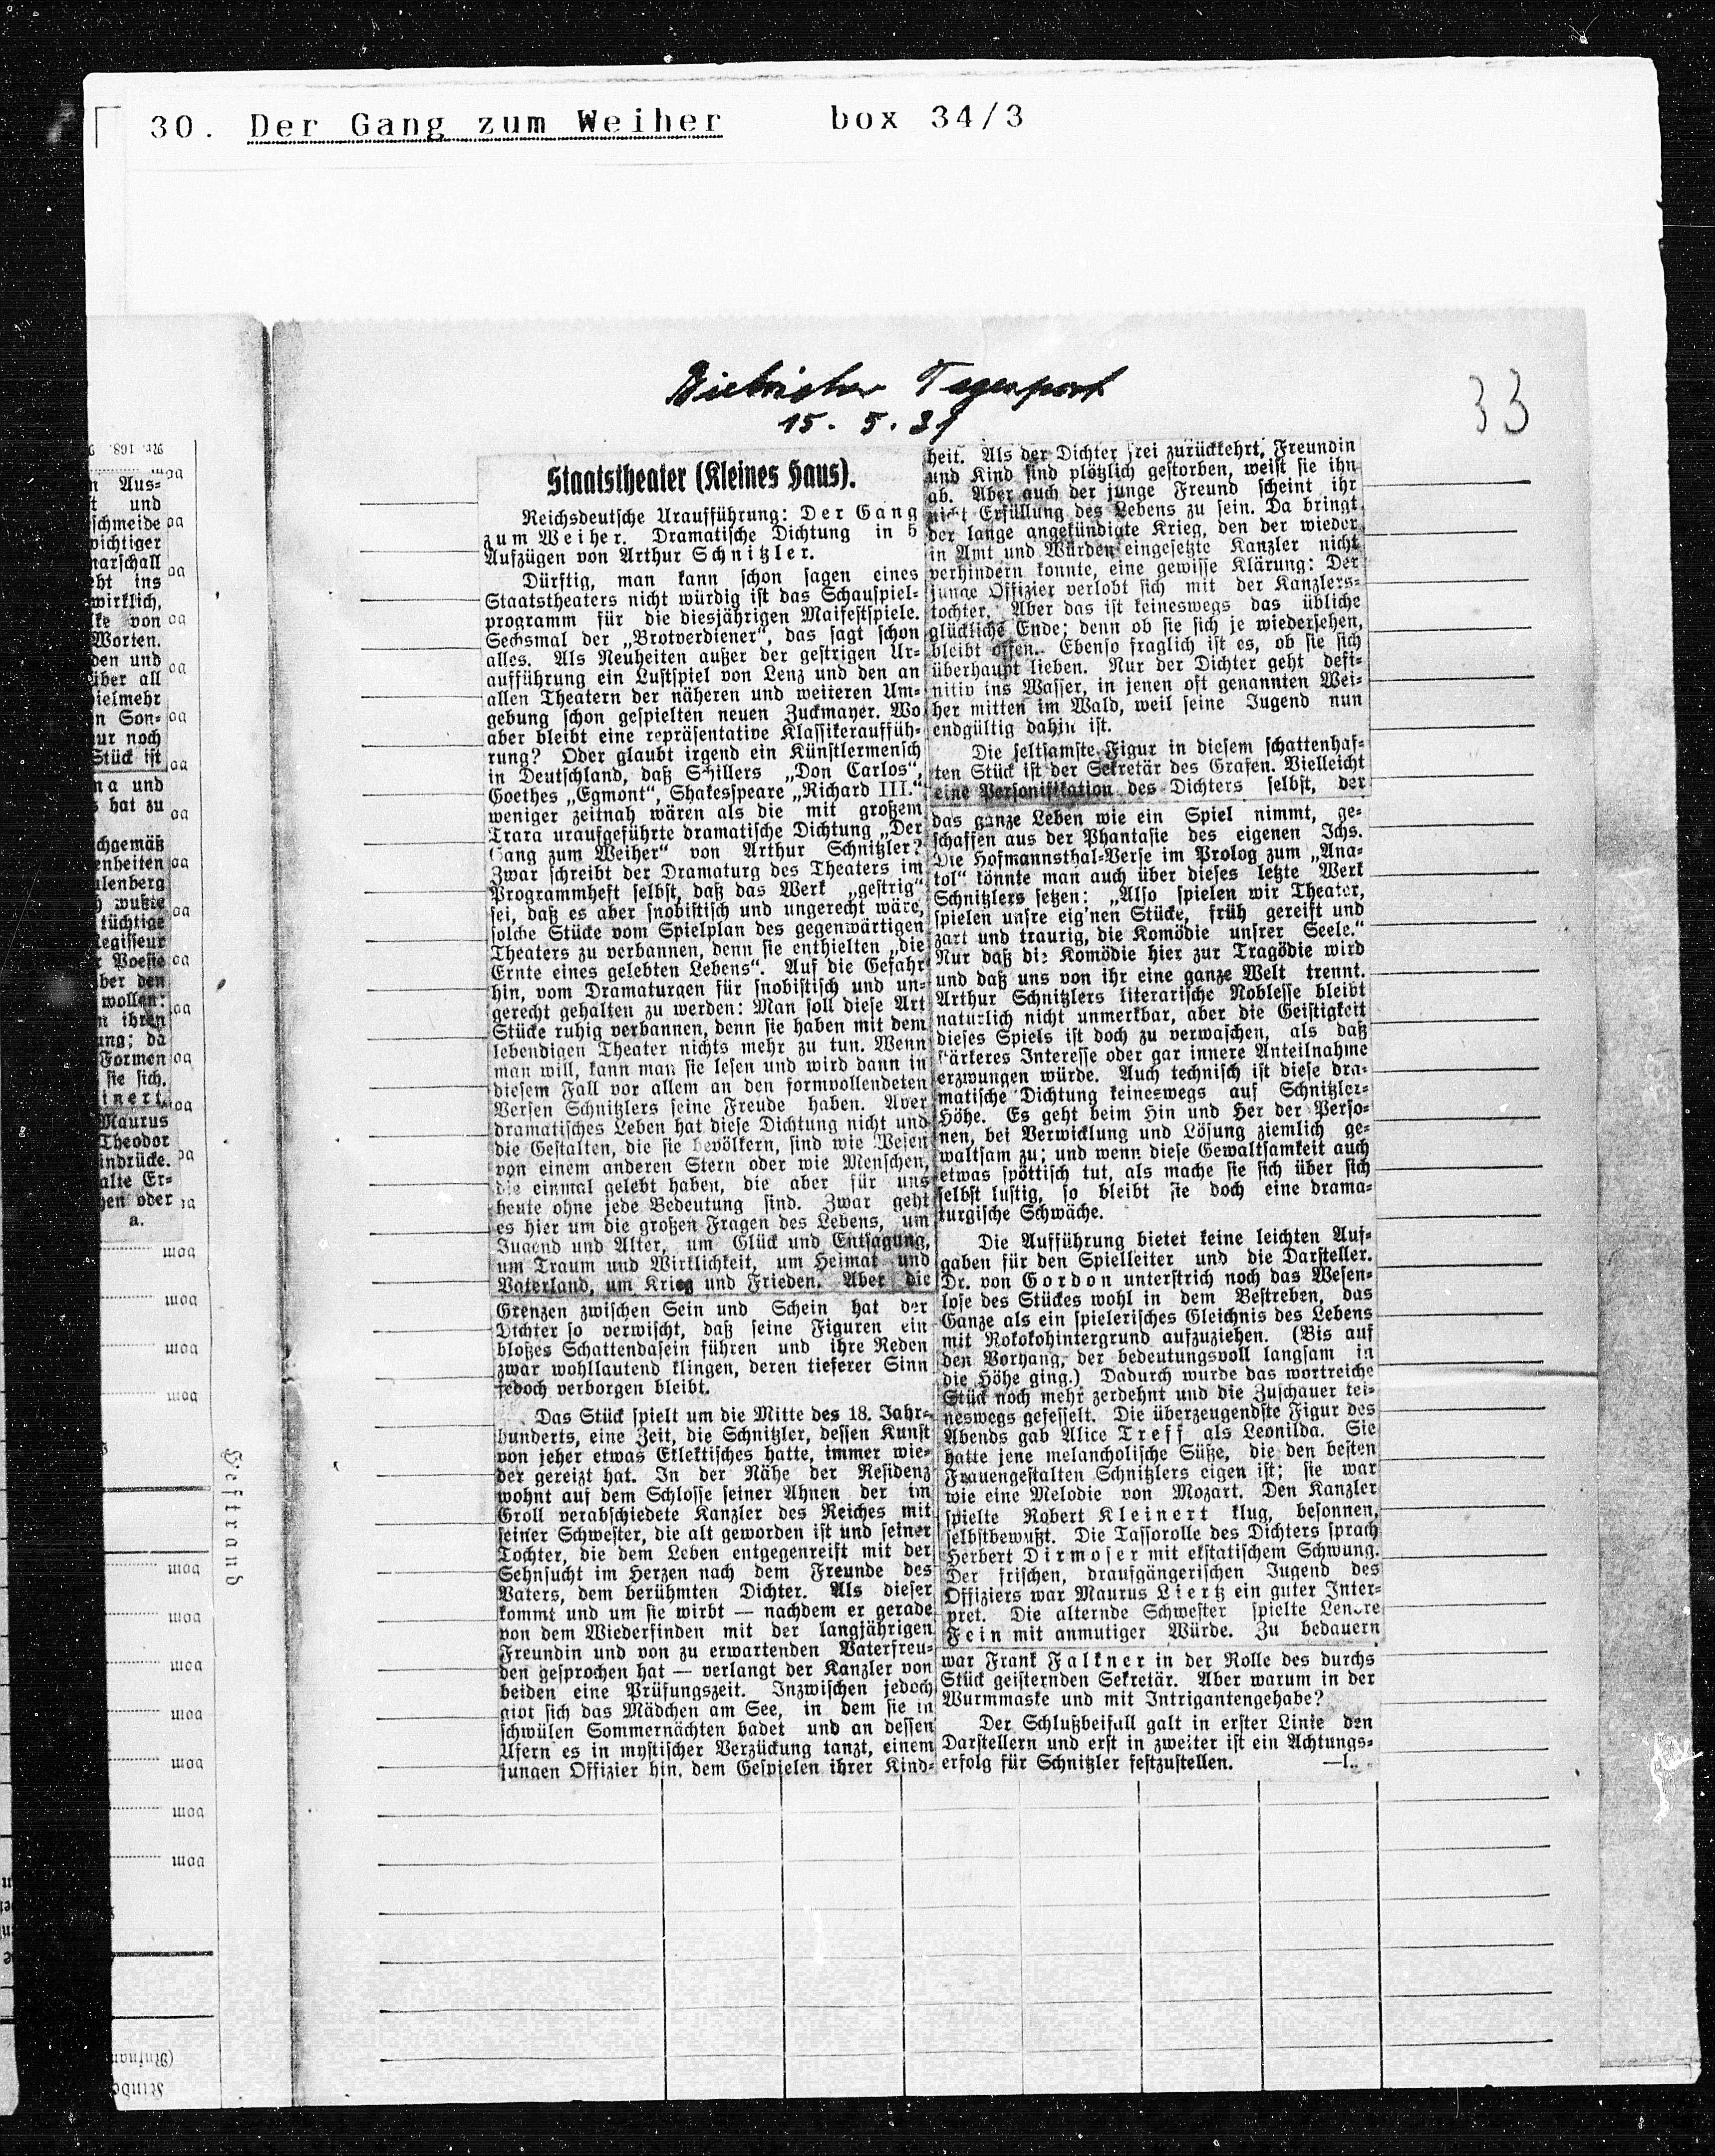 30. Der Gang zum Weiher box 34/3
33
15. 5. 31
Staatstheater (Kleines Haus).
Reichsdeutsche Uraufführung: Der Gang
zum Weiher. Dramatische Dichtung in 5
Aufzügen von Arthur Schnitzler.
Dürftig, man kann schon sagen eines
Staatstheaters nicht würdig ist das Schauspiel-
programm für die diesjährigen Maifestspiele.
Sechsmal der „Brotverdiener“, das sagt schon
alles. Als Neuheiten außer der gestrigen Ur-
aufführung ein Lustspiel von Lenz und den an
allen Theatern der näheren und weiteren Um-
gebung schon gespielten neuen Zuckmayer. Wo
aber bleibt eine repräsentative Klassikerauffüh-
rung? Oder glaubt irgend ein Künstlermensch
in Deutschland, daß Schillers „Don Carlos“,
Goethes „Egmont“, Shakesspeare „Richard III.“
weniger zeitnah wären als die mit großem
Trara uraufgeführte dramatische Dichtung „Der
Gang zum Weiher“ von Arthur Schnitzler?
Zwar schreibt der Dramaturg des Theaters im
Programmheft selbst, daß das Werk „gestrig“
sei, daß es aber snobistisch und ungerecht wäre,
solche Stücke vom Spielplan des gegenwärtigen
Theaters zu verbannen, denn sie enthielten „die
Ernte eines gelebten Lebens“. Auf die Gefahr
hin, vom Dramaturgen für snobistisch und un-
gerecht gehalten zu werden: Man soll diese Art
Stücke ruhig verbannen, denn sie haben mit dem
lebendigen Theater nichts mehr zu tun. Wenn
man will, kann man sie lesen und wird dann in
diesem Fall vor allem an den formvollendeten
Versen Schnitzlers seine Freude haben. Aber
dramatisches Leben hat diese Dichtung nicht und
die Gestalten, die sie bevölkern, sind wie Wesen
von einem anderen Stern oder wie Menschen,
die einmal gelebt haben, die aber für uns
heute ohne jede Bedeutung sind. Zwar geht
es hier um die großen Fragen des Lebens, um
Jugend und Alter, um Glück und Entsagung,
um Traum und Wirklichkeit, um Heimat und
Vaterland, um Krieg und Frieden. Aber die
Grenzen zwischen Sein und Schein hat der
Dichter so verwischt, daß seine Figuren ein
bloßes Schattendasein führen und ihre Reden
zwar wohllautend klingen, deren tieferer Sinn
jedoch verborgen bleibt.
Das Stück spielt um die Mitte des 18. Jahr-
hunderts, eine Zeit, die Schnitzler, dessen Kunst
von jeher etwas Eklektisches hatte, immer wie-
der gereizt hat. In der Nähe der Residenz
wohnt auf dem Schlosse seiner Ahnen der im
Groll verabschiedete Kanzler des Reiches mit
seiner Schwester, die alt geworden ist und seiner
Tochter, die dem Leben entgegenreift mit der
Sehnsucht im Herzen nach dem Freunde des
Vaters, dem berühmten Dichter. Als dieser
kommt und um sie wirbt — nachdem er gerade
von dem Wiederfinden mit der langjährigen
Freundin und von zu erwartenden Vaterfreu-
den gesprochen hat — verlangt der Kanzler von
beiden eine Prüfungszeit. Inzwischen jedoch
gibt sich das Mädchen am See, in dem sie in
schwülen Sommernächten badet und an dessen
Ufern es in mystischer Verzückung tanzt, einem
jungen Offizier hin, dem Gespielen ihrer Kind-
heit. Als der Dichter frei zurückkehrt, Freundin
und Kind sind plötzlich gestorben, weist sie ihn
ab. Aber auch der junge Freund scheint ihr
nicht Erfüllung des Lebens zu sein. Da bringt
der lange angekündigte Krieg, den der wieder
in Amt und Würden eingesetzte Kanzler nicht
verhindern konnte, eine gewisse Klärung: Der
junge Offizier verlobt sich mit der Kanzlers-
tochter. Aber das ist keineswegs das übliche
glückliche Ende; denn ob sie sich je wiedersehen,
bleibt offen. Ebenso fraglich ist es, ob sie sich
überhaupt lieben. Nur der Dichter geht defi-
nitiv ins Wasser, in jenen oft genannten Wei-
her mitten im Wald, weil seine Jugend nun
endgültig dahin ist.
Die seltsamste Figur in diesem schattenhaf-
ten Stück ist der Sekretär des Grafen. Vielleicht
eine Personifikation des Dichters selbst, der
das ganze Leben wie ein Spiel nimmt, ge-
schaffen aus der Phantasie des eigenen Ichs.
Die Hofmannsthal-Verse im Prolog zum „Ana-
tol“ könnte man auch über dieses letzte Werk
Schnitzlers setzen: „Also spielen wir Theater,
spielen unsre eig'nen Stücke, früh gereift und
zart und traurig, die Komödie unsrer Seele.“
Nur daß die Komödie hier zur Tragödie wird
und daß uns von ihr eine ganze Welt trennt.
Arthur Schnitzlers literarische Noblesse bleibt
natürlich nicht unmerkbar, aber die Geistigkeit
dieses Spiels ist doch zu verwaschen, als daß
stärkeres Interesse oder gar innere Anteilnahme
erzwungen würde. Auch technisch ist diese dra-
matische Dichtung keineswegs auf Schnitzler-
Höhe. Es geht beim Hin und Her der Perso-
nen, bei Verwicklung und Lösung ziemlich ge-
waltsam zu; und wenn diese Gewaltsamkeit auch
etwas spöttisch tut, als mache sie sich über sich
selbst lustig, so bleibt sie doch eine drama-
turgische Schwäche.
Die Aufführung bietet keine leichten Auf-
gaben für den Spielleiter und die Darsteller.
Dr. von Gordon unterstrich noch das Wesen-
lose des Stückes wohl in dem Bestreben, das
Ganze als ein spielerisches Gleichnis des Lebens
mit Rokokohintergrund aufzuziehen. (Bis auf
den Vorhang, der bedeutungsvoll langsam in
die Höhe ging.) Dadurch wurde das wortreiche
Stück noch mehr zerdehnt und die Zuschauer kei-
neswegs gefesselt. Die überzeugendste Figur des
Abends gab Alice Treff als Leonilda. Sie
hatte jene melancholische Süße, die den besten
Frauengestalten Schnitzlers eigen ist; sie war
wie eine Melodie von Mozart. Den Kanzler
spielte Robert Kleinert klug, besonnen,
selbstbewußt. Die Tassorolle des Dichters sprach
Herbert Dirmoser mit ekstatischem Schwung.
Der frischen, draufgängerischen Jugend des
Offiziers war Maurus Liertz ein guter Inter-
pret. Die alternde Schwester spielte Lenore
Fein mit anmutiger Würde. Zu bedauern
war Frank Falkner in der Rolle des durchs
Stück geisternden Sekretär. Aber warum in der
Wurmmaske und mit Intrigantengehabe?
Der Schlußbeifall galt in erster Linie den
Darstellern und erst in zweiter ist ein Achtungs-
erfolg für Schnitzler festzustellen. —l.
Heftrand